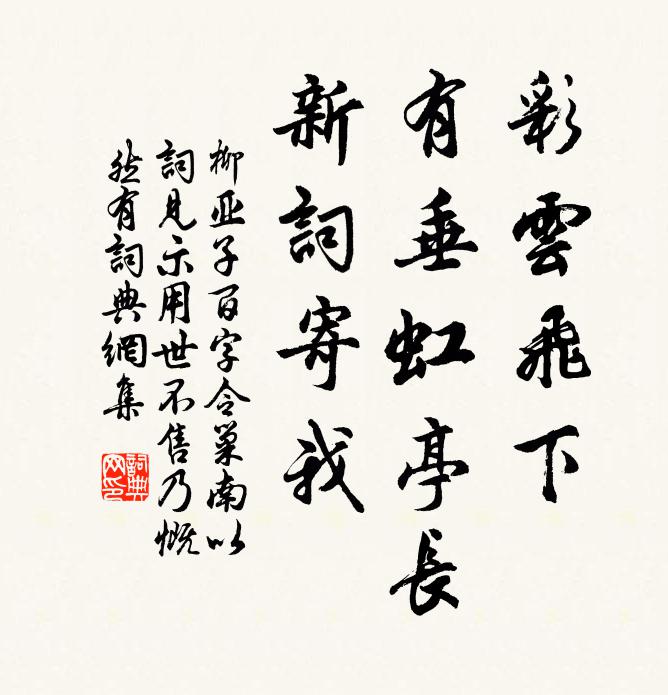 彩雲飛下
有垂虹亭長
新詞寄我
柳亚子百字令巢南以
詞見示用世不售乃慨
然有詞典網集
詞典網印